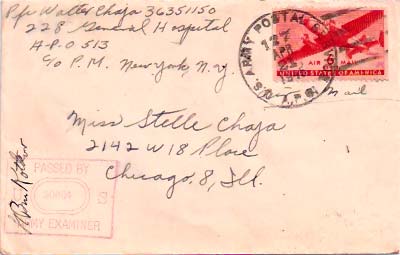 Pfc Walter Chaja 36351150
228 General Hospital
A.P.O 513
c/o P.M. New York N.Y.
U.S. ARMY POSTAL SERVICE
A.P.O.
127
APR
AIR MAIL
6¢
UNITED STATES OF AMERICA
Mail
Miss Stelle Chaja
2142 W 18 Place
Chicago. 8, Ill.
PASSED BY
ARMY EXAMINER